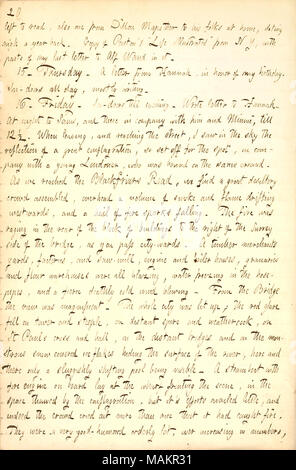 20
left to read, also one from Dillon Mapother to his folks at home, dating
with a year back. Copy of Porter's "Life Illustrated" from N.Y., with
paste of my last letter to Alf Waud in it.
15. Thursday. A letter from Hannah, in honor of my birthday.
In-doors all day, mostly writing.
16. Friday. In-doors till evening. Wrote letter to Hannah.
At night to Sams, and there in company with him and Minnie, till
12½. When leaving, and reaching the street, I saw in the sky the
reflection of a great conflagration, so set off for the spot, in com-
pany with a young Londoner, who was bound on the same errand.
As we reached the Blackfriars Road, we find a great desultory
crowd assembled, overhead a volume of smoke and flame drifting
westwards, and a hail of fire sparks falling. The fire was
raging in the rear of the block of buildings to the right of the Surrey
side of the bridge, as you pass city-wards. A timber merchants
yards, factories, and saw mill, engine and boiler houses, granaries
and flour warehouses were all blazing, water freezing in the hose-
pipes, and a fierce deathly cold wind blowing. From the Bridge
the view was magnificent. The whole city was lit up, the red glare
fell on tower and steeple, on distant spire and weathercock, on
St Paul's cross and ball, on the distant bridges and on the mon-
strous snow covered ice flakes hiding the surface of the river, here and
there only a sluggishly shifting pool being visible. A steamboat with
fire engine on board lay at the wharf fronting the scene, in the
space thawed by the conflagration, but it's efforts availed little, and
indeed the crowd cried out more than once that it had caught fire.
They were a very good-humored orderly lot, ever increasing in numbers,
alamy
Image ID: MAKR31
www.alamy.com